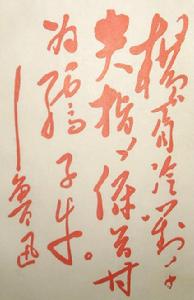 横眉冷对千
夫指，俯首甘
为孺子牛。
—鲁迅